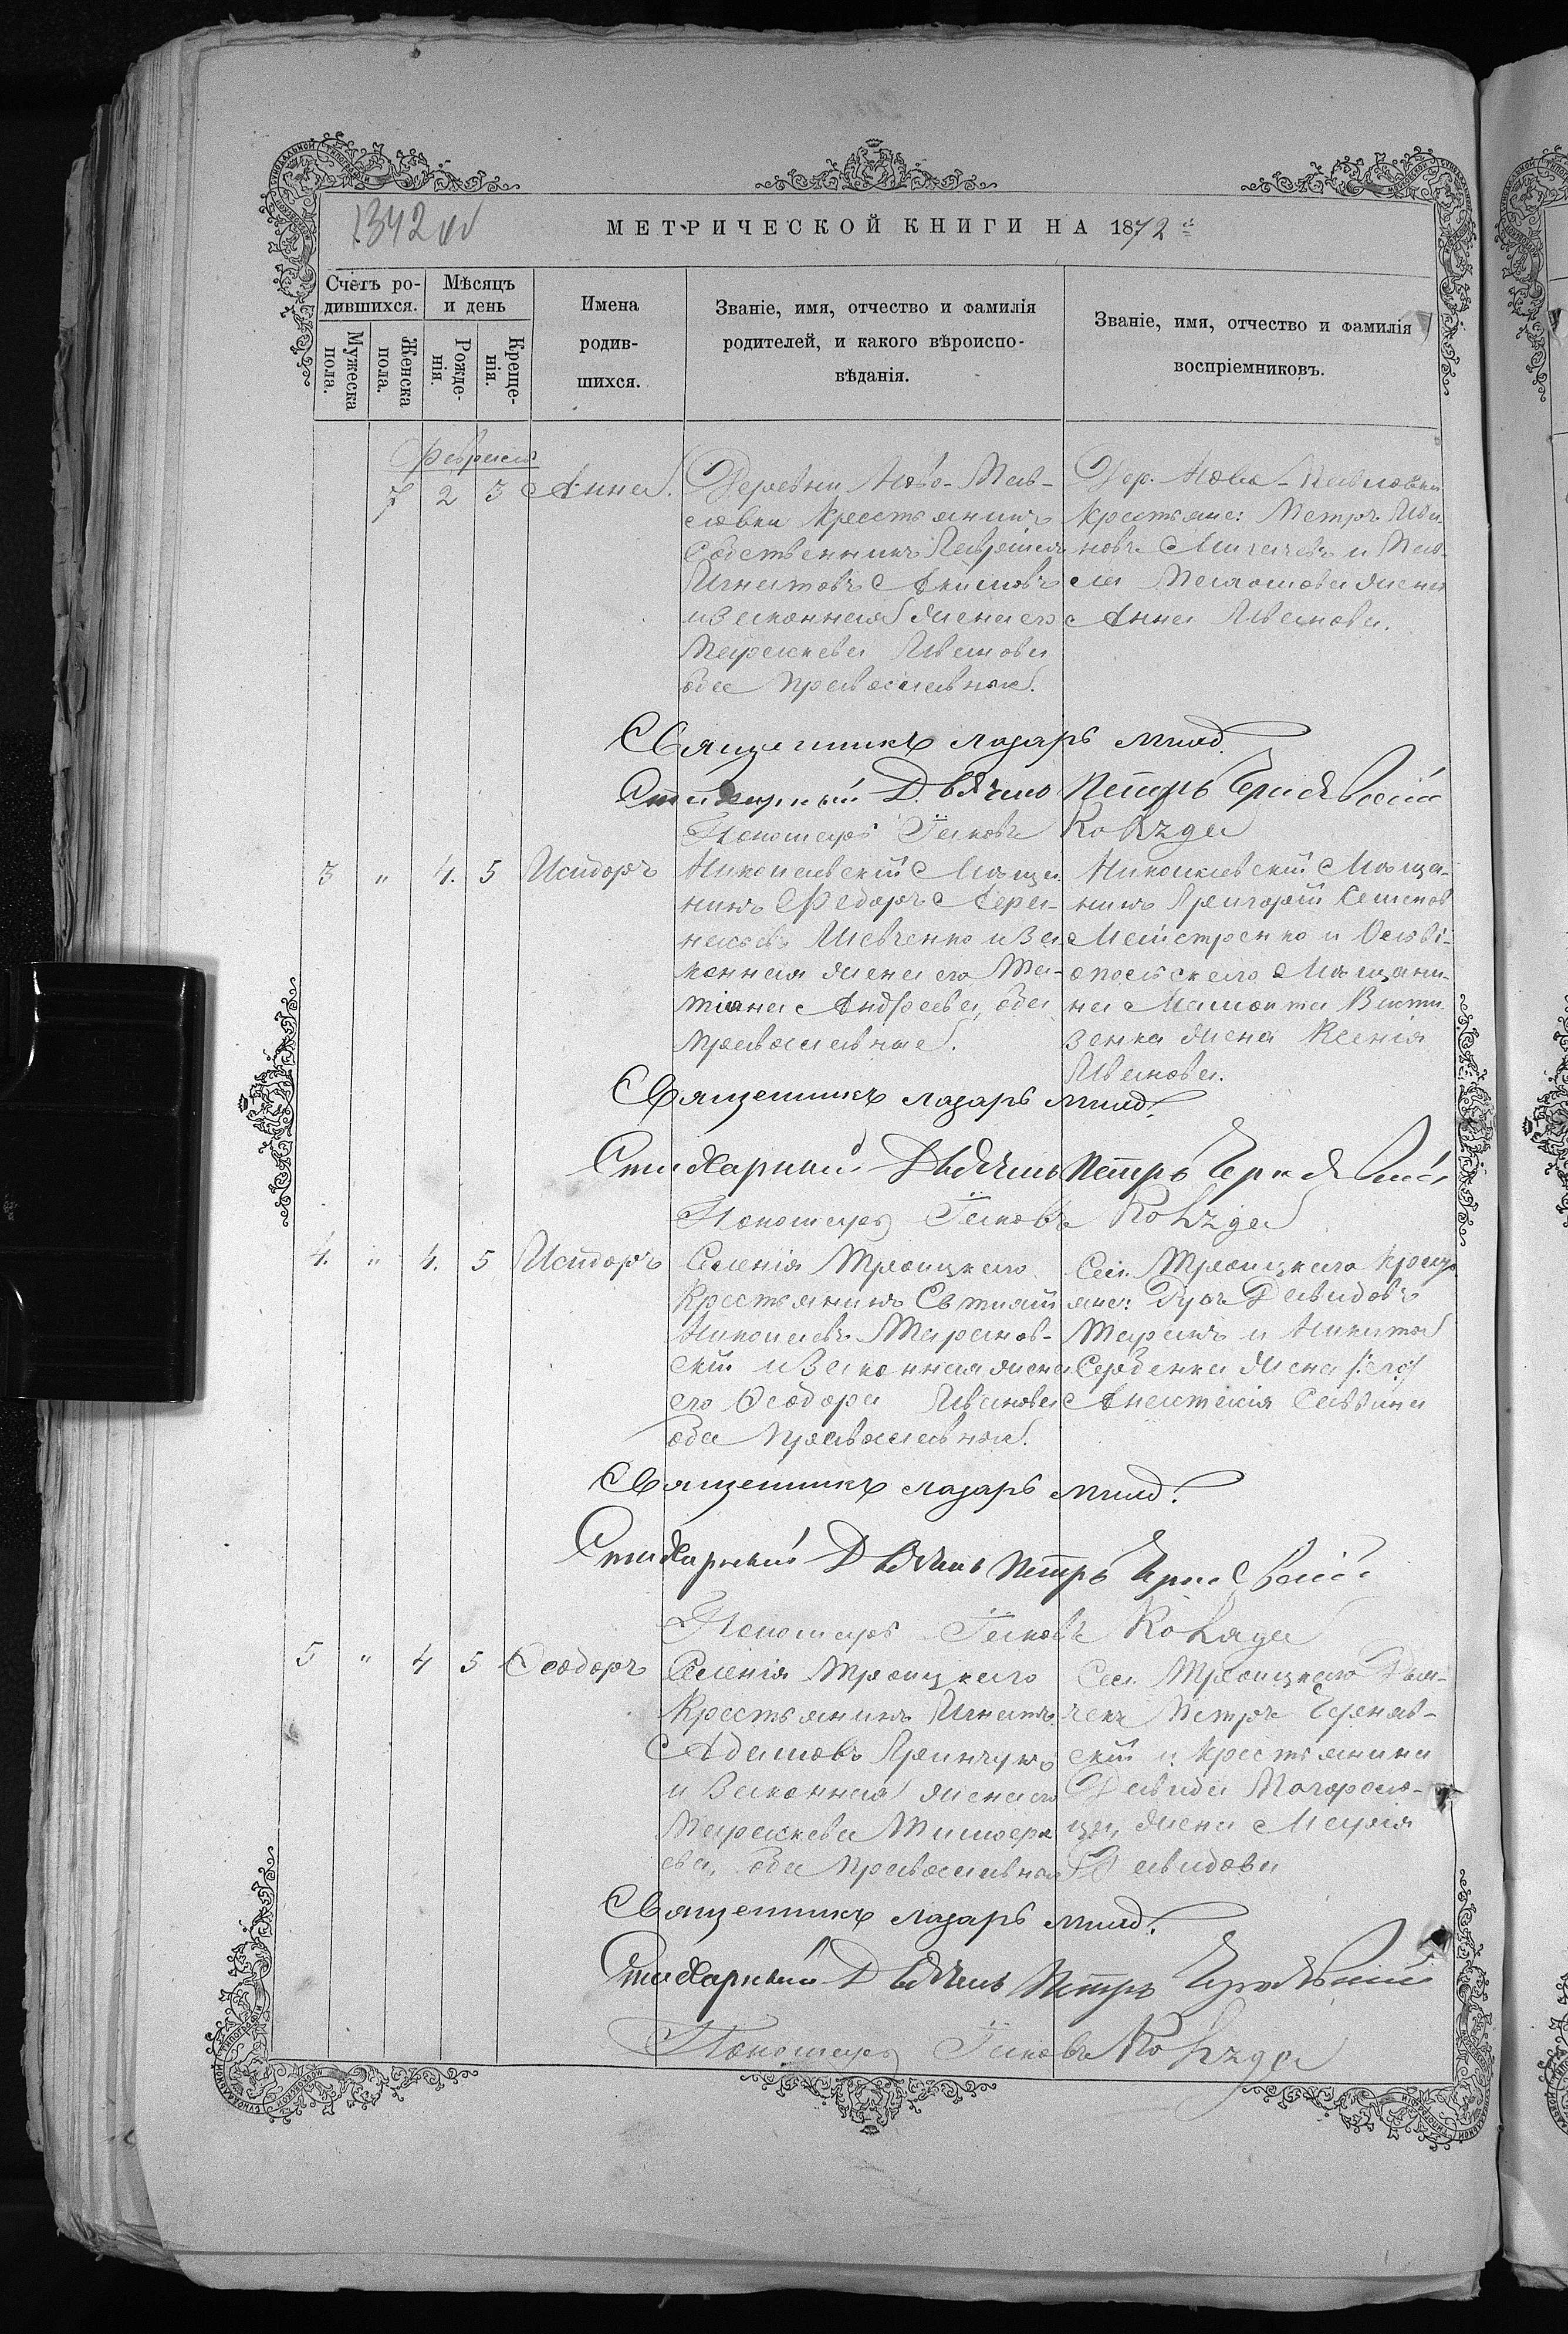 1342 об
МЕТРИЧЕСКОЙ КНИГИ НА 1872 г.
Счетъ ро-
дившихся.
Мѣсяцъ
и день
Мужеска
пола.
Женска
пола.
Рожде-
нія.
Креще-
нія.
Имена
родив-
шихся.
Званіе, имя, отчество и фамилія
родителей, и какого вѣроиспо-
вѣданія.
Званіе, имя, отчество и фамилія
воспріемниковъ.
Февраль
7 2 3 Анна.
Деревни Ново-Пав-
ловки крестьянинъ
собственникъ Гаврiилъ
Игнатовъ Акимовъ
и законная жена его
Параскева Иванова
оба православные.
Дер. Ново-Павловки
крестьяне: Петръ Ива-
новъ и Пав-
ла жена
Анна Иванова.
Священникъ Лазарь
Стихарный Дьячекъ Петръ Чернявскій
Пономарь Іаковъ Коляда
3 " 4. 5 Исидоръ
Николаевскій Мѣща-
нинъ Федоръ Афа-
насьевъ Шевченко и за-
конная жена его Та-
тiана Андреева, оба
православные.
Николаевскій Мѣща-
нинъ Григорій Семенов
Майстренко и Ольвi-
опольскаго Мѣщани-
на Мамонта
жена Ксенія
Иванова.
Священникъ Лазарь
Стихарный Дьячекъ Петръ Чернявскій
Пономарь Іаковъ Коляда
4. " 4. 5 Исидоръ
Селенія Троицкаго
Крестьянинъ
Николаевъ Таранов-
скій и законная жена
его Ѳеодора Иванова
оба Православные.
Сел. Троицкаго крестья
яне: Давидовъ
Таранъ и Никита
Серденка жена
Анастасія Саввина
Священникъ Лазарь
Стихарный Дьячекъ Петръ Чернявскій
Пономарь Іаковъ Коляда
5 " 4 5 Ѳеодоръ
Селенія Троицкаго
Крестьянинъ Игнатъ
Адамовъ Гринчукъ
и законная жена его
Параскева Тимофе-
ева, оба Православные
Сел. Троицкаго Дья-
чекъ Петръ Черняв-
скій и крестьянина
Давида Погорело-
ца, жена Марія
Давидова
Священникъ Лазарь
Стихарный Дьячекъ Петръ Чернявскій
Пономарь Іаковъ Коляда